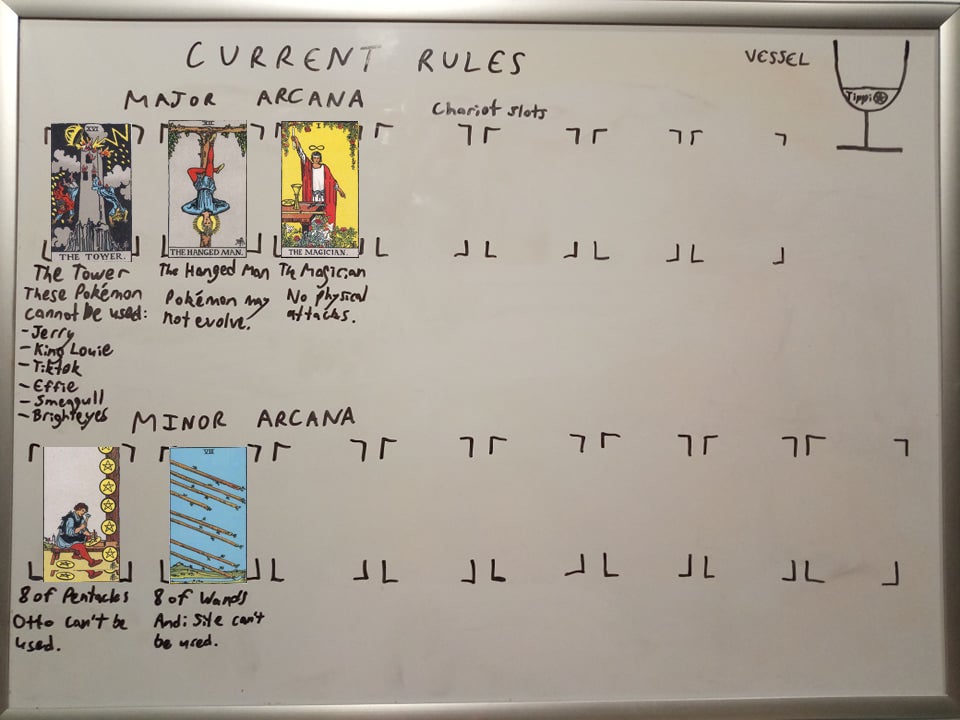 CURRENT RULES
VESSEL
Tippi
MAJOR ARCANA
Chariot slots
XVI
THE TOWER.
XII
THE HANGED MAN.
I
THE MAGICIAN.
The Tower
These Pokémon
cannot be used:
-Jerry
-King Louie
-Tiktok
-Effie
-Smeagull
-Brighteyes
The Hanged Man
Pokémon may
not evolve.
The Magician
No physical
attacks.
MINOR ARCANA
VIII
8 of Pentacles
Otto can't be
used.
8 of Wands
Andi Site can't
be used.